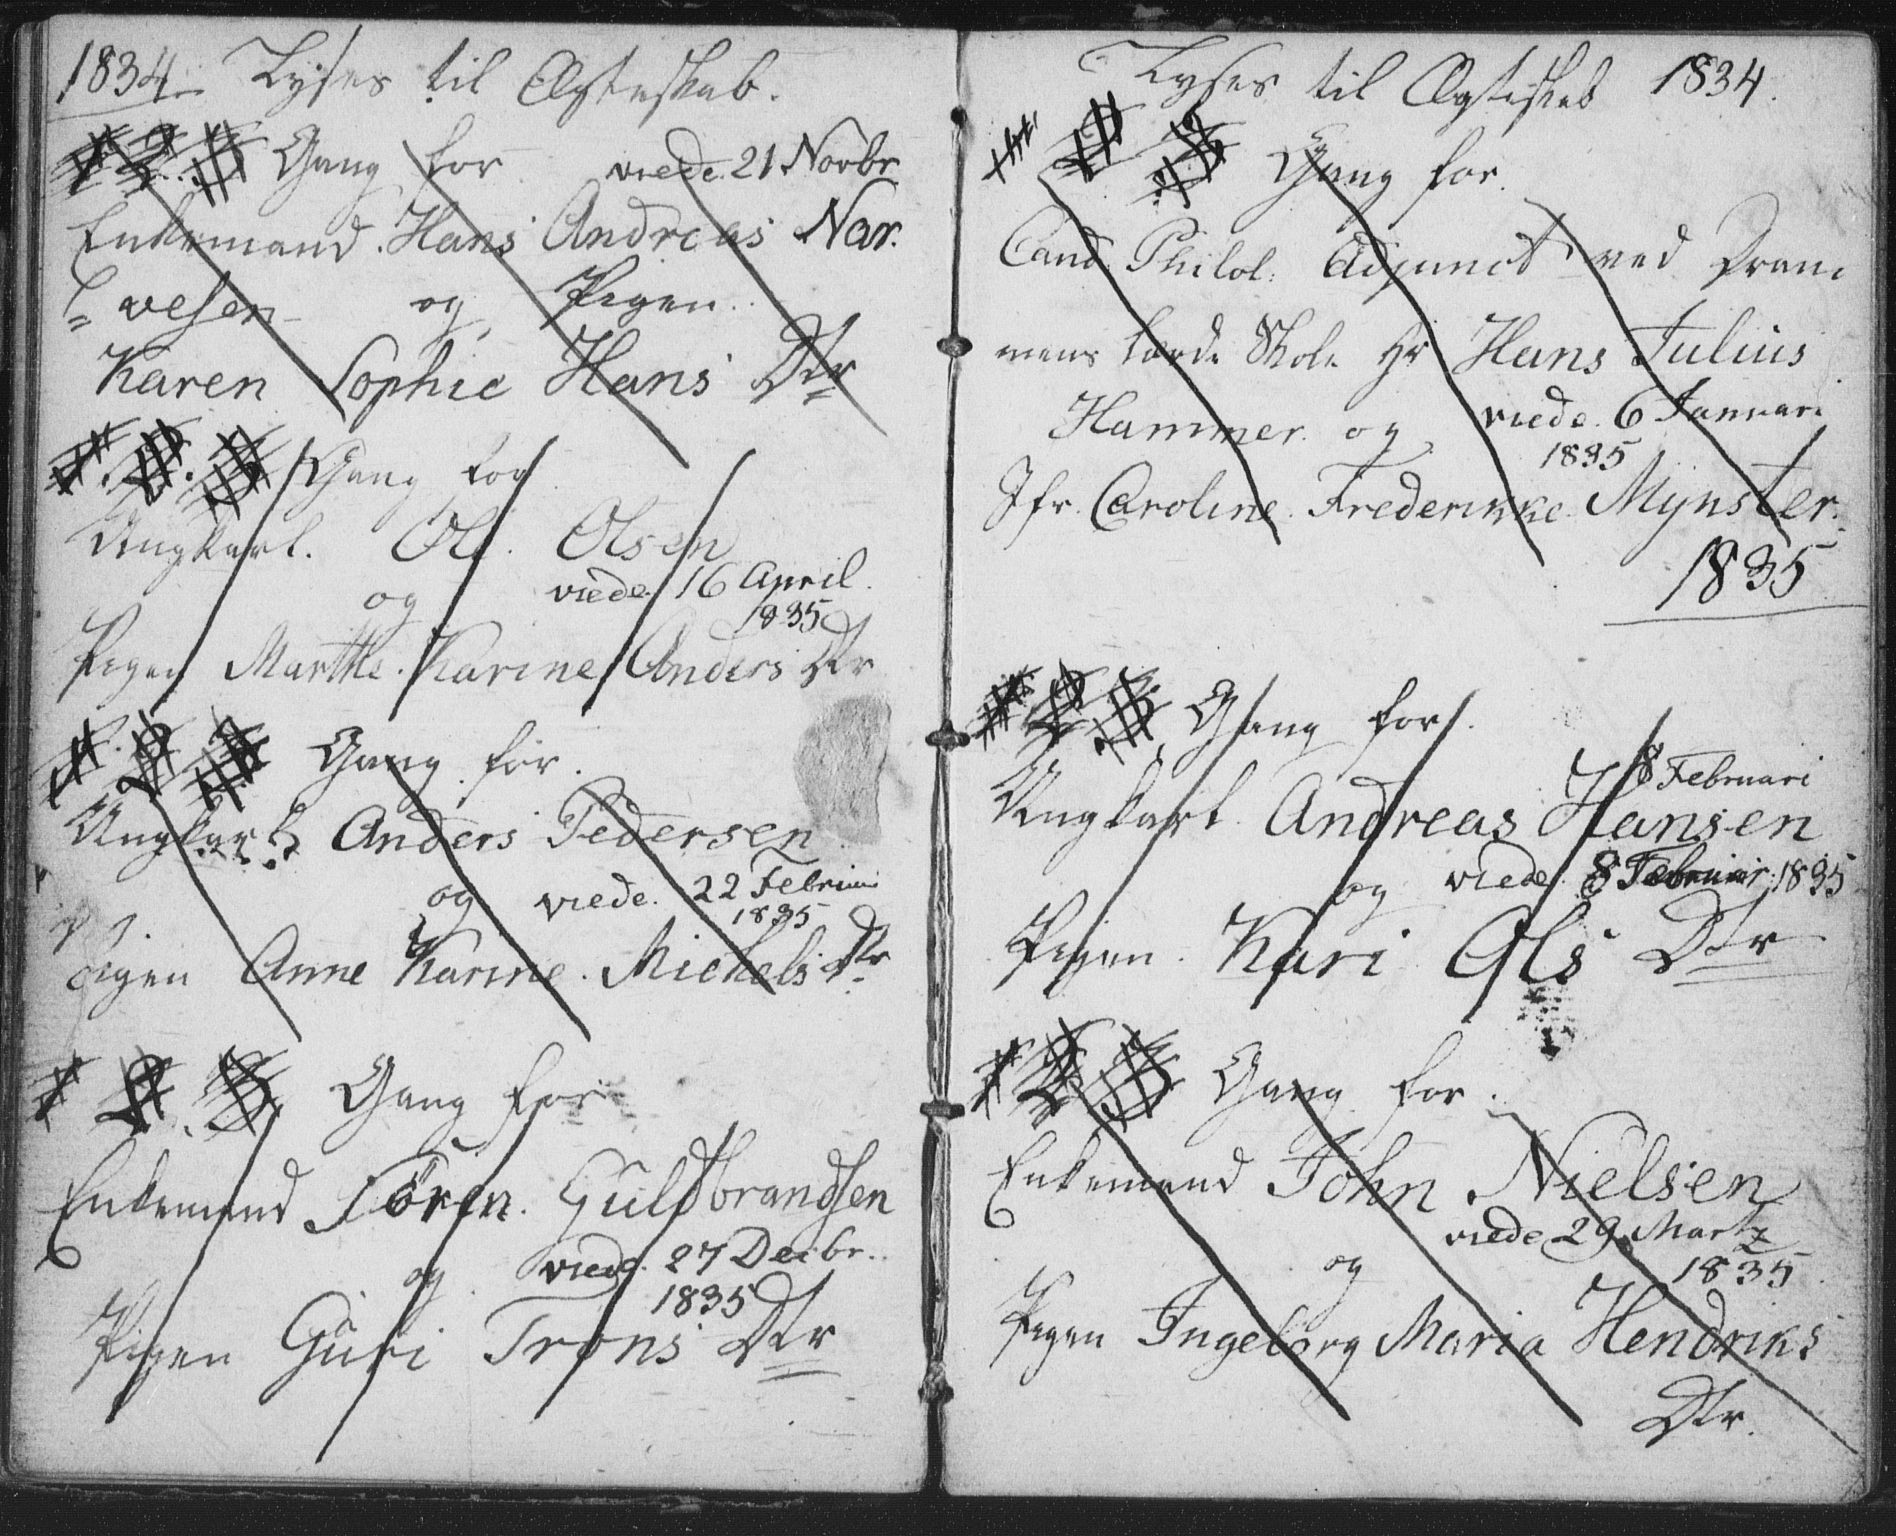 1834. Lyses til Ægteskab.
1. 2. 3 Gang for viede. 21 Novbr
Enkemand. Hans Andreas Nar.
vesen og Pigen.
Karen Sophie Hans Dtr
1. 2. 3 Gang for
Ungkarl. Ole Olsen
og viede. 16 April.
1835
Pigen Marthe. Karine Anders Dtr
1. 2. 3 Gang for.
Ungkarl Anders Pedersen
og viede. 22 Februari
1835
Pigen Anne Karine. Michels Dtr
1 2. 3 Gang for
Enkemand Sören. Guldbrandsen
og viede. 27 Decbr.
1835
Pigen Guri Trons Dtr
Lyses til Ægteskab 1834.
1 2 3 Gang for.
Cand. Philol. Adjunct ved Dram
mens lærde Skole Hr Hans Julius
Hammer. og viede. 6 Januari
1835
Jfr. Caroline. Frederikke. Mynster.
1835
1 2 3 Gang for.
8 Februari
Ungkarl. Andreas Hansen
og viede. 8 Februar. 1835
Pigen. Kari Ols Dtr
1 2 3 Gang for.
Enkemand John Nielsen
viede 29. Martz
og 1835
Pigen Ingeborg Maria Hendriks
Dtr.